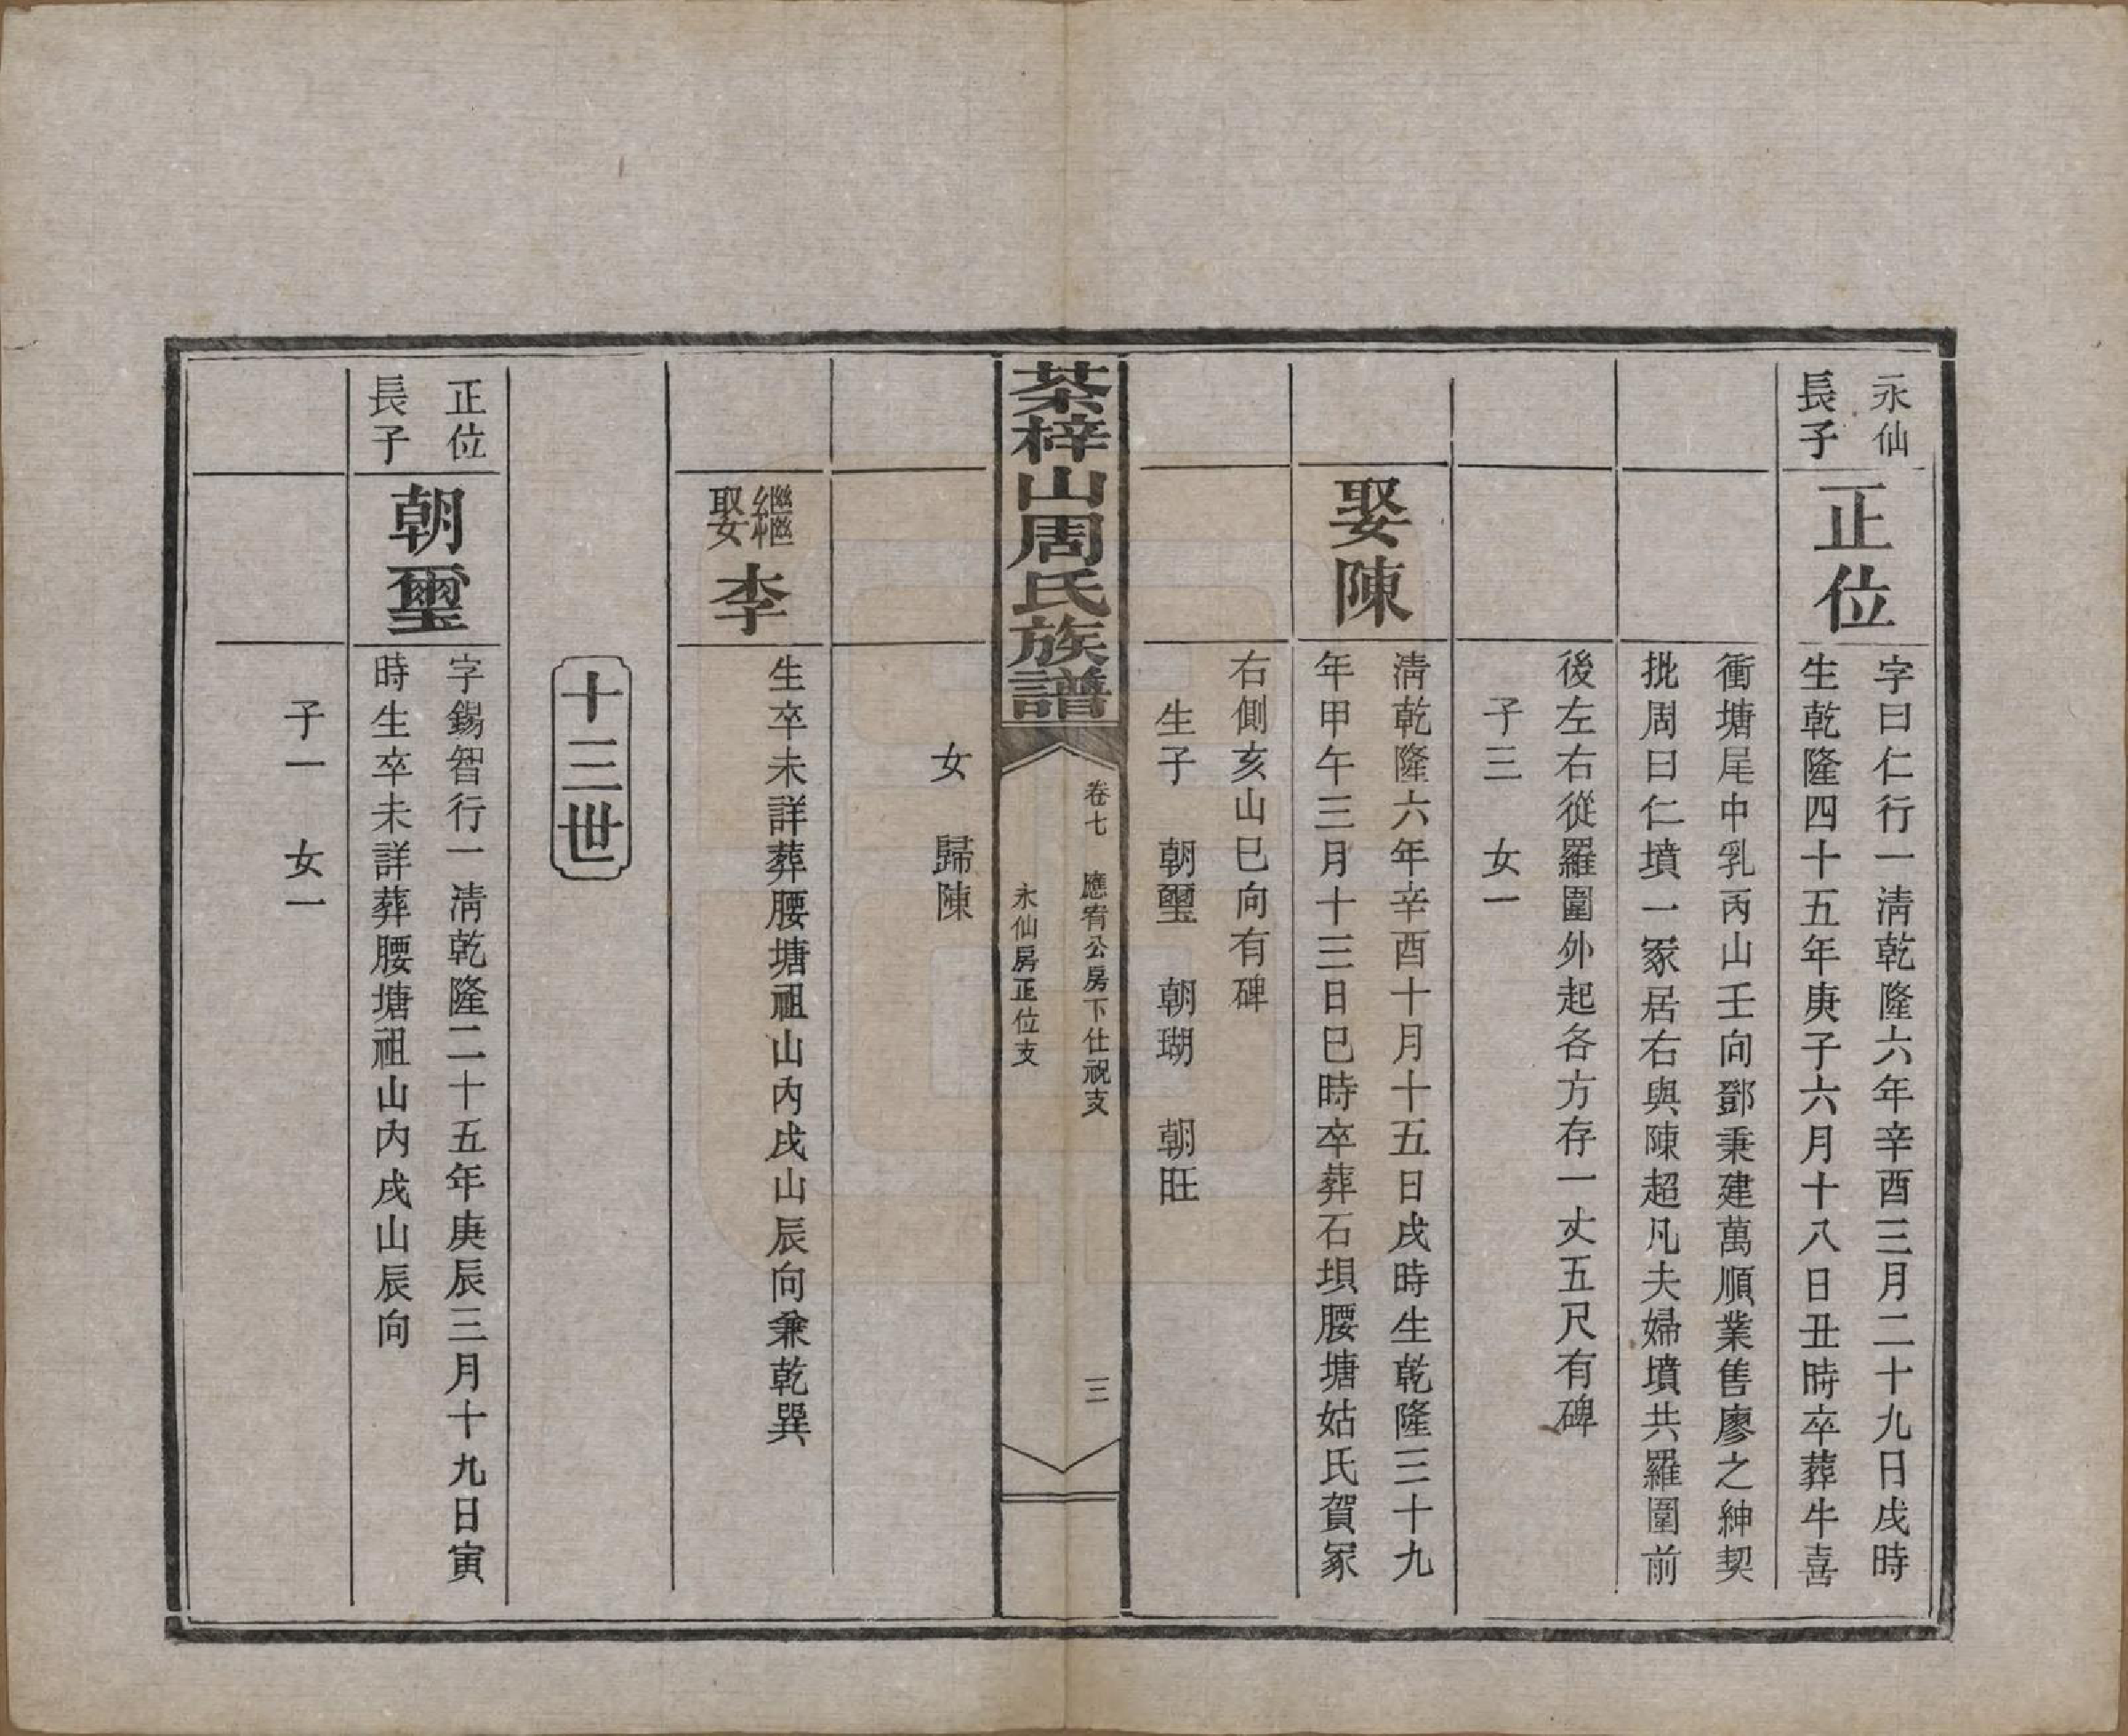 永仙
長子
正位
字曰仁行一淸乾隆六年辛酉三月二十九日戌時
生乾隆四十五年庚子六月十八日丑時卒葬牛喜
衝塘尾中乳丙山壬向鄧秉建萬順業售廖之紳契
批周曰仁墳一冢居右與陳超凡夫婦墳共羅圍前
後左右從羅圍外起各方存一丈五尺有碑
子三　女一
娶陳
淸乾隆六年辛酉十月十五日戌時生乾隆三十九
年甲午三月十三日巳時卒葬石垻腰塘姑氏賀冢
右側亥山巳向有碑
生子　朝璽　朝瑚　朝旺
茶梓山周氏族譜
卷七　應宥公房下仕祝支
永仙房正位支
三
女　歸陳
繼娶
李
生卒未詳葬腰塘祖山內戌山辰向兼乾巽
十三世
正位
長子
朝璽
字錫智行一淸乾隆二十五年庚辰三月十九日寅
時生卒未詳葬腰塘祖山內戌山辰向
子一　女一